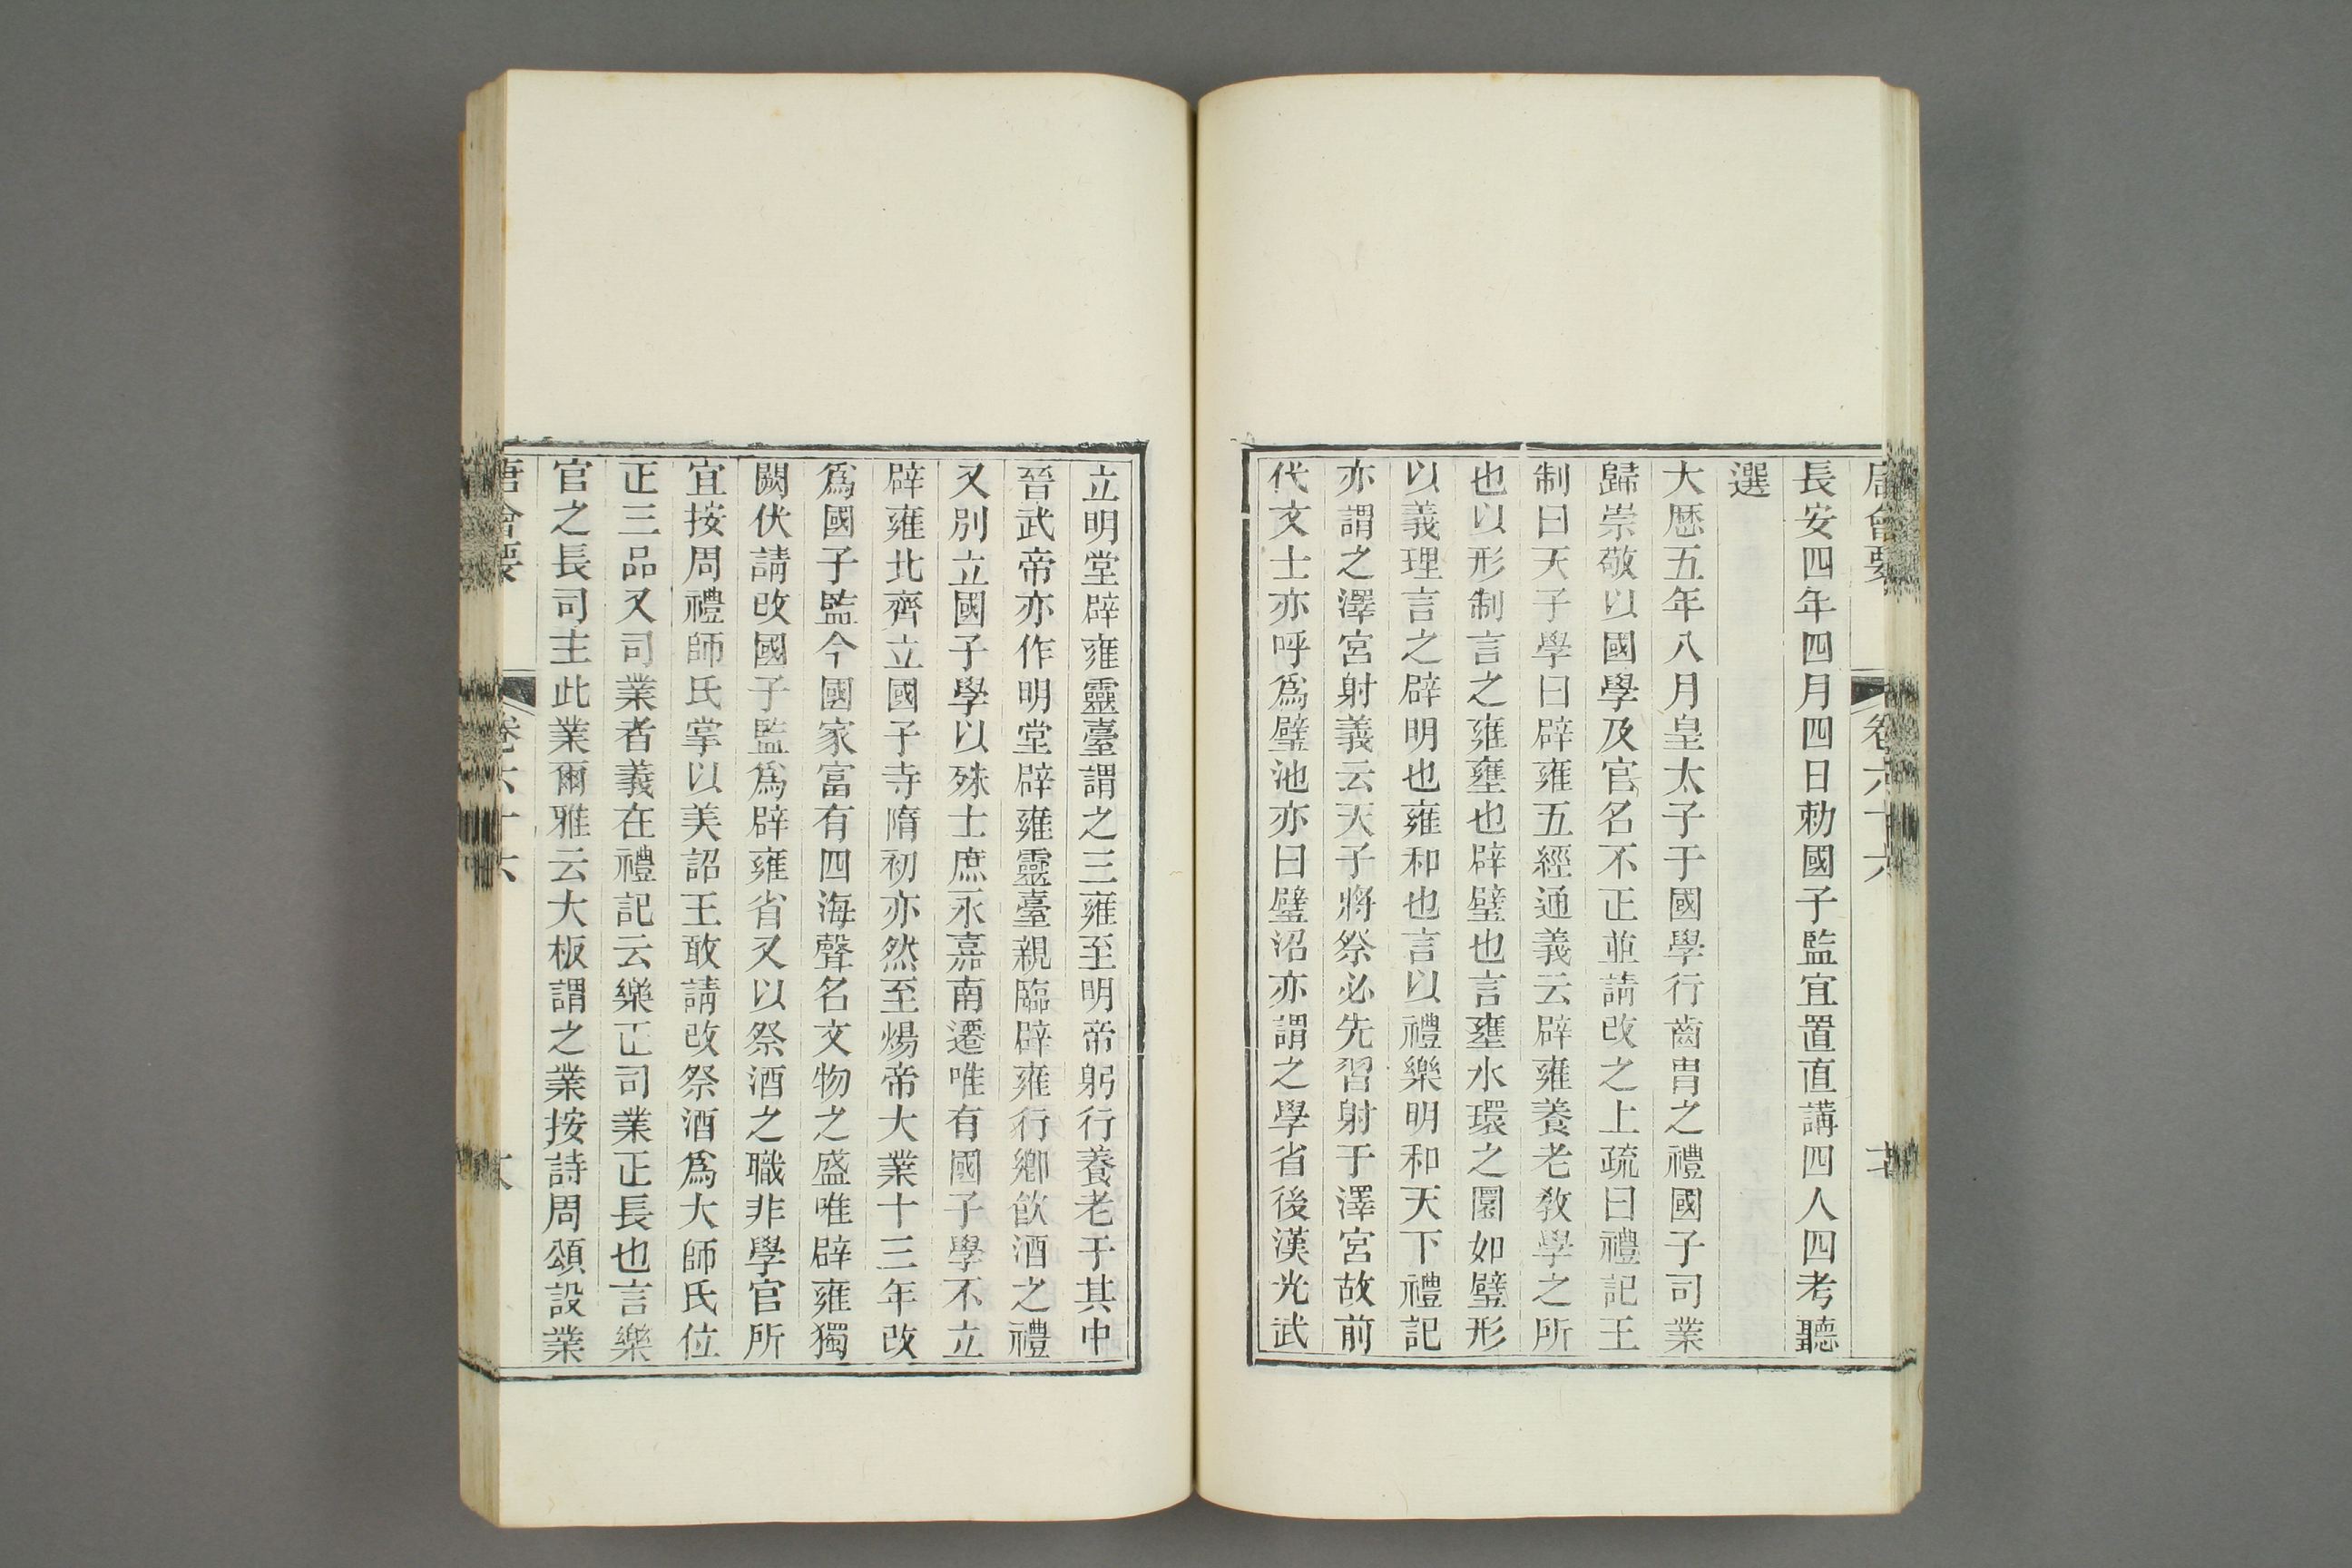 唐會要 卷六十六
長安四年四月四日勑國子監宜置直講四人四考聽
選
大歷五年八月皇太子于國學行齒胄之禮國子司業
歸崇敬以國學及官名不正並請改之上疏曰禮記王
制曰天子學曰辟雍五經通義云辟雍養老敎學之所
也以形制言之雍壅也辟璧也言壅水環之圜如璧形
以義理言之辟明也雍和也言以禮樂明和天下禮記
亦謂之澤宮射義云天子將祭必先習射于澤宮故前
代文士亦呼爲璧池亦曰璧沼亦謂之學省後漢光武
立明堂辟雍靈臺謂之三雍至明帝躬行養老于其中
晉武帝亦作明堂辟雍靈臺親臨辟雍行鄉飮酒之禮
又別立國子學以殊士庶永嘉南遷唯有國子學不立
辟雍北齊立國子寺隋初亦然至煬帝大業十三年改
爲國子監今國家富有四海聲名文物之盛唯辟雍獨
闕伏請改國子監爲辟雍省又以祭酒之職非學官所
宜按周禮師氏掌以美詔王敢請改祭酒爲大師氏位
正三品又司業者義在禮記云樂正司業正長也言樂
官之長司主此業爾雅云大板謂之業按詩周頌設業
唐會要 卷六十六